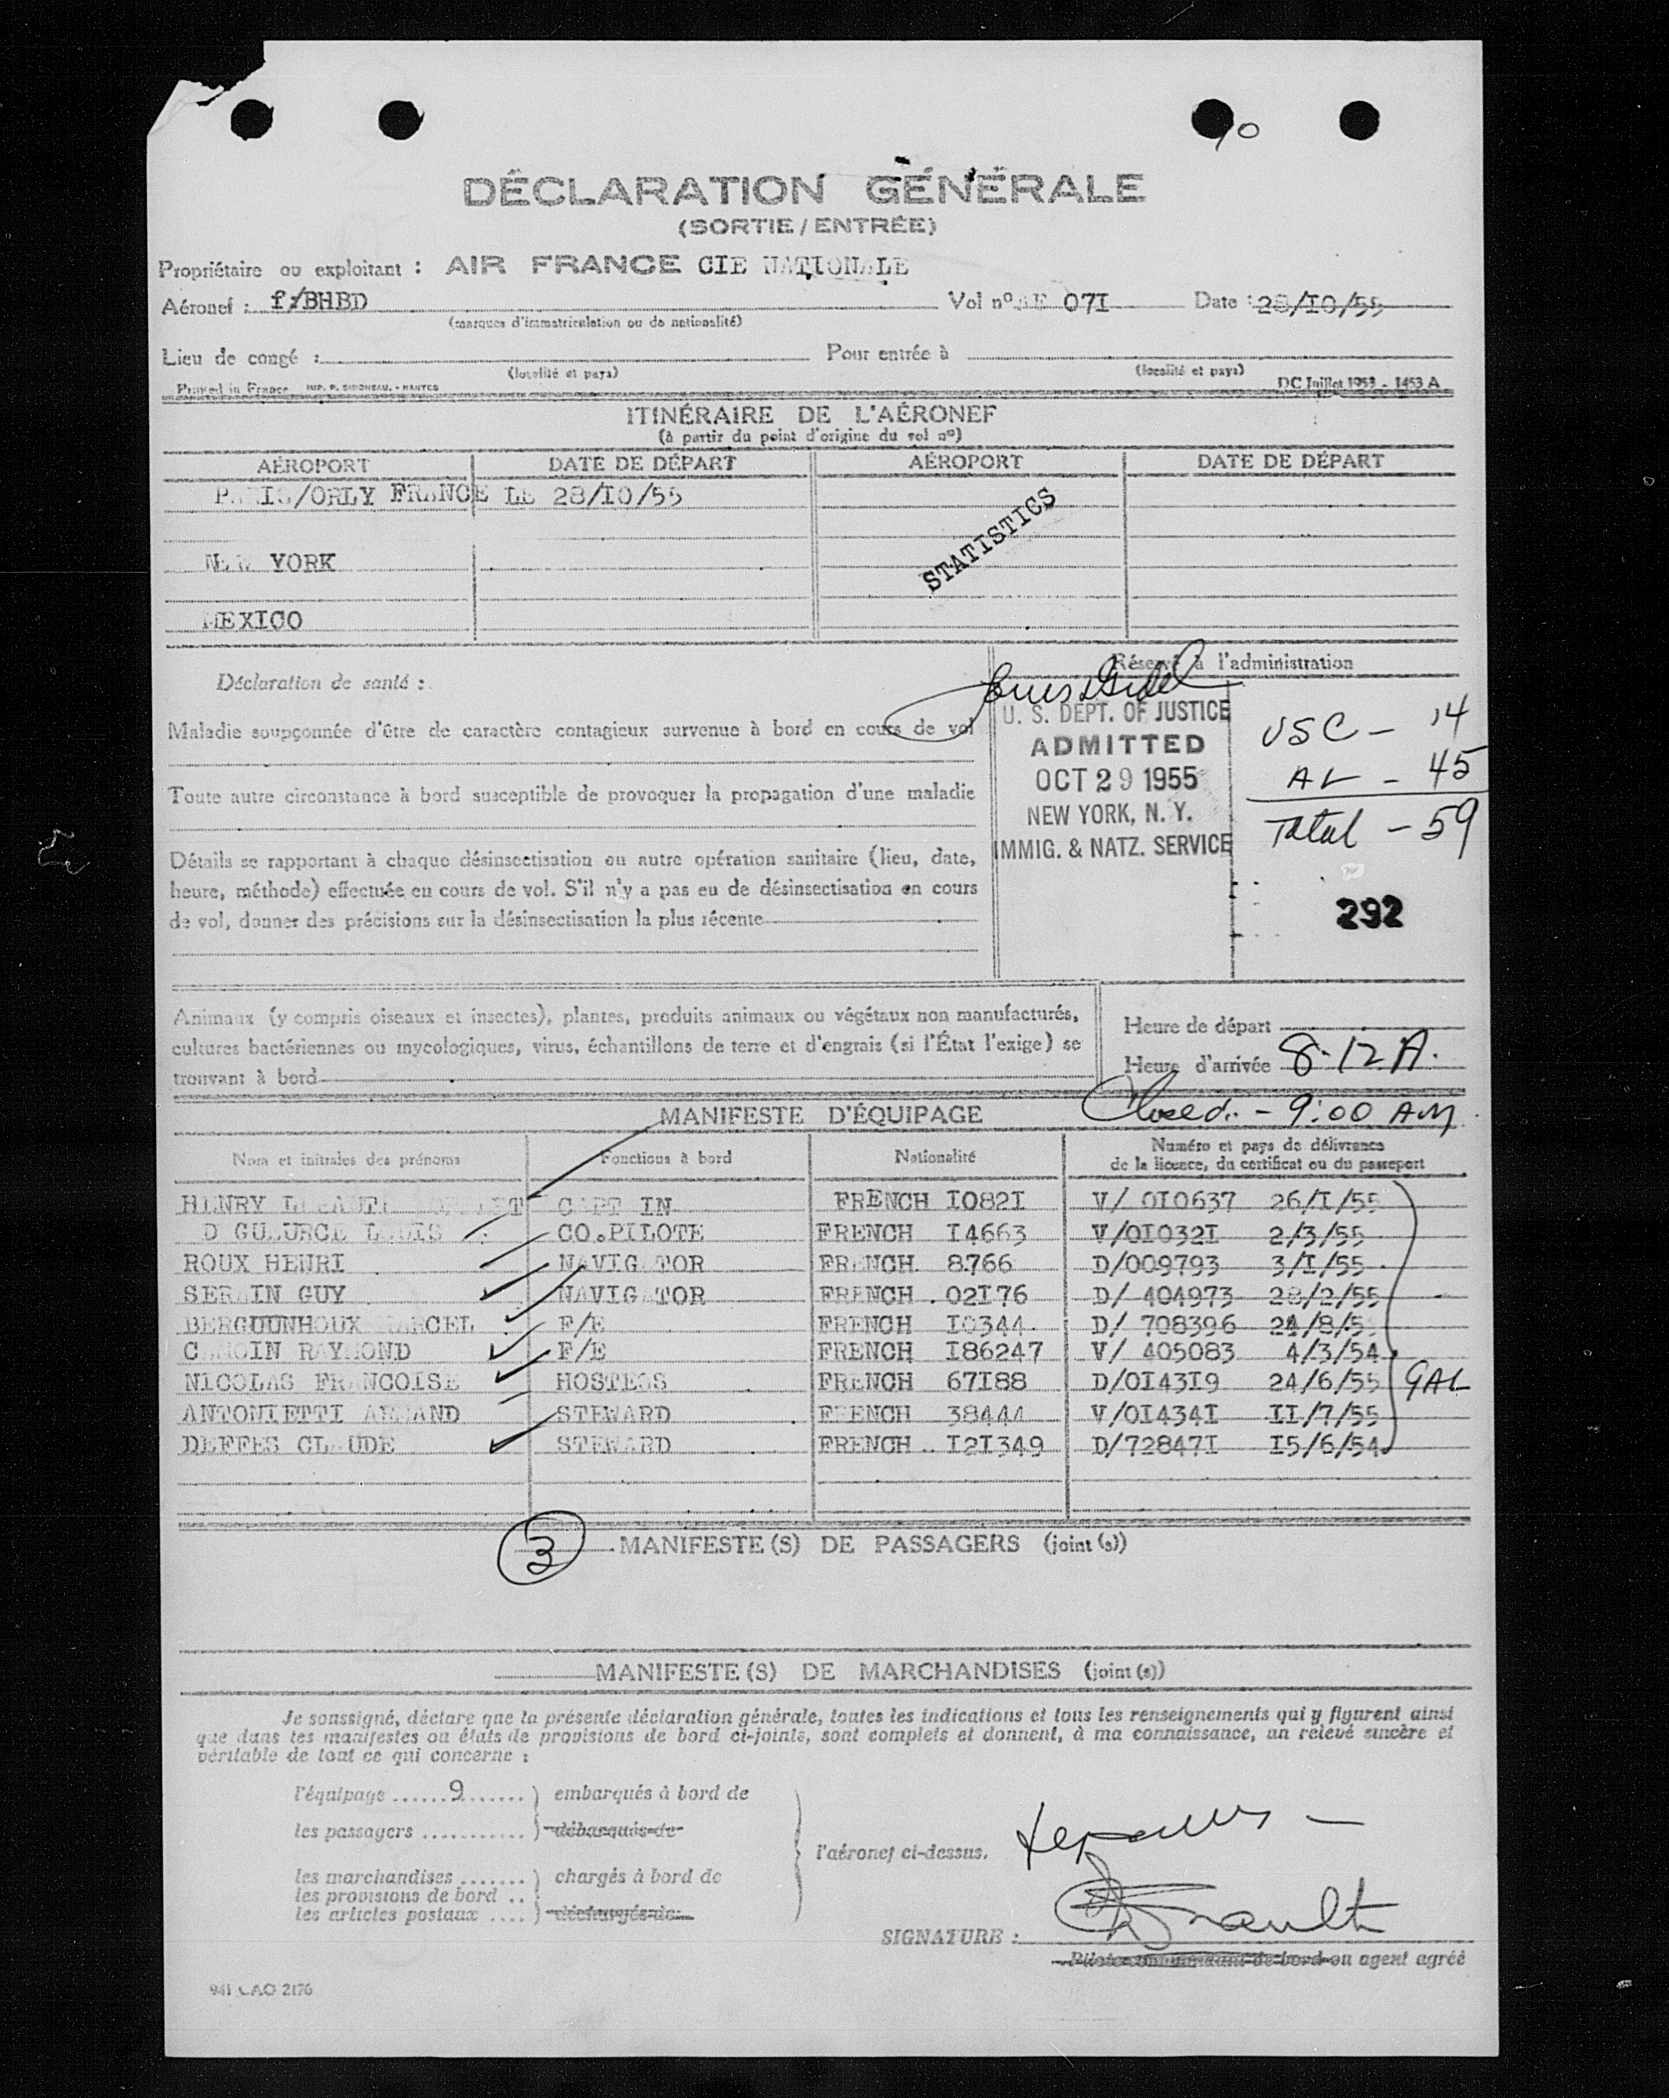 DÉCLARATION GÉNÉRALE
(SORTIE / ENTRÉE)
Propriétaire ou exploitant : AIR FRANCE CIE NATIONALE
Aéronef : f:/BHBD Vol nº 07I Date : 28/IO/55
(marques d'immatriculation ou de nationalité)
Lieu de congé : Pour entrée à
(localité et pays) (localité et pays)
Printed in France IMP. P. SIMONEAU. - NANTES DC Juillet 1953 - 1453 A
ITINÉRAIRE DE L'AÉRONEF
(à partir du point d'origine du vol nº)
AÉROPORT DATE DE DÉPART AÉROPORT DATE DE DÉPART
PARIS/ORLY FRANCE LE 28/IO/55
STATISTICS
NEW YORK
MEXICO
Réservé à l'administration
Déclaration de santé :
Maladie soupçonnée d'être de caractère contagieux survenue à bord en cours de vol
Toute autre circonstance à bord susceptible de provoquer la propagation d'une maladie
Détails se rapportant à chaque désinsectisation ou autre opération sanitaire (lieu, date,
heure, méthode) effectuée en cours de vol. S'il n'y a pas eu de désinsectisation en cours
de vol, donner des précisions sur la désinsectisation la plus récente
U. S. DEPT. OF JUSTICE
ADMITTED
OCT 29 1955
NEW YORK, N. Y.
IMMIG. & NATZ. SERVICE
USC - 14
AL - 45
Total - 59
292
Animaux (y compris oiseaux et insectes), plantes, produits animaux ou végétaux non manufacturés,
cultures bactériennes ou mycologiques, virus, échantillons de terre et d'engrais (si l'État l'exige) se
trouvant à bord
Heure de départ
Heure d'arrivée 8-12 A.
Closed. - 9:00 AM
MANIFESTE D'ÉQUIPAGE
Nom et initiales des prénoms Fonctions à bord Nationalité Numéro et pays de délivrance
de la licence, du certificat ou du passeport
HENRY CAPTAIN FRENCH IO82I V/ 0I0637 26/I/55
CO.PILOTE FRENCH I4663 V/0I032I 2/3/55
ROUX HENRI NAVIGATOR FRENCH 8766 D/009793 3/I/55
SERAIN GUY NAVIGATOR FRENCH 02I76 D/ 404973 28/2/55
BERGUUNHOUX MARCEL F/E FRENCH I0344 D/ 708396
RAYMOND F/E FRENCH I86247 V/ 405083 4/3/54
NICOLAS FRANCOISE HOSTESS FRENCH 67I88 D/0I43I9 24/6/55 GAL
ANTONIETTI ARMAND STEWARD FRENCH 38444 V/0I434I II/7/55
DEFFES CLAUDE STEWARD FRENCH I2I349 D/72847I I5/6/54
3 MANIFESTE(S) DE PASSAGERS (joint(s))
MANIFESTE(S) DE MARCHANDISES (joint(s))
Je soussigné, déclare que la présente déclaration générale, toutes les indications et tous les renseignements qui y figurent ainsi
que dans les manifestes ou états de provisions de bord ci-joints, sont complets et donnent, à ma connaissance, un relevé sincère et
véritable de tout ce qui concerne :
l'équipage ......9....... ) embarqués à bord de
les passagers ............ ) débarqués de
l'aéronef ci-dessus.
les marchandises ....... ) chargés à bord de
les provisions de bord ..
les articles postaux .... ) déchargés de
SIGNATURE :
Pilote commandant de bord ou agent agréé
941 CAO 2176